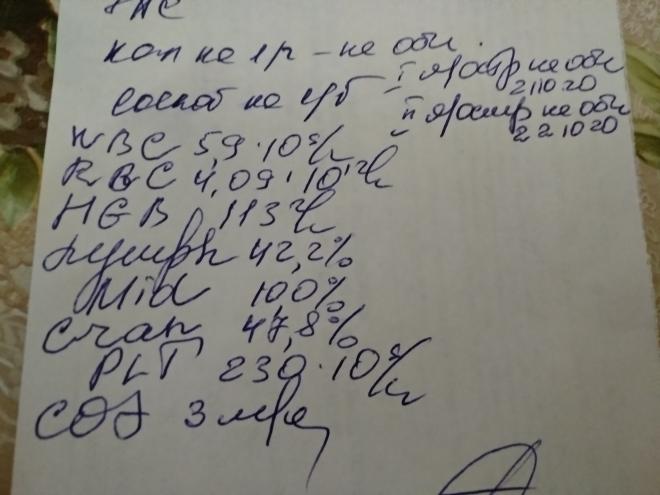 кал на я/г - не обн.
соскоб на э/б - I я/остр не обн
21 10 20
II я/остр не обн
22 10 20
WBC 5,9·10⁹/л
RBC 4,09·10¹²/л
HGB 113 г/л
Lymph 42,2%
Mid 10,0%
Gran 47,8%
PLT 230·10⁹/л
СОЭ 3 мм/ч